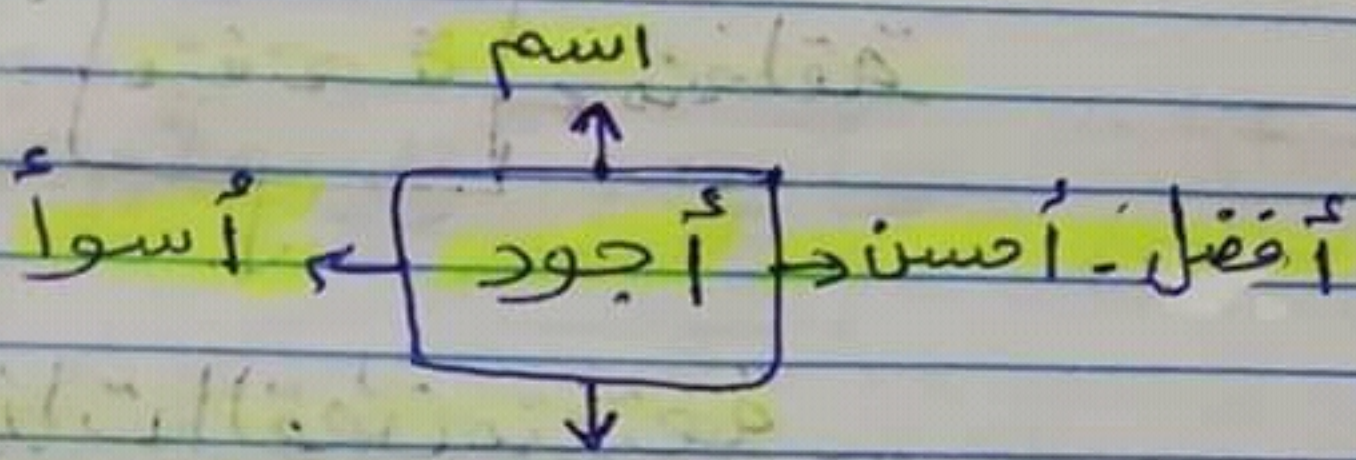 اسم
أفضل - أحسن أجود أسوأ